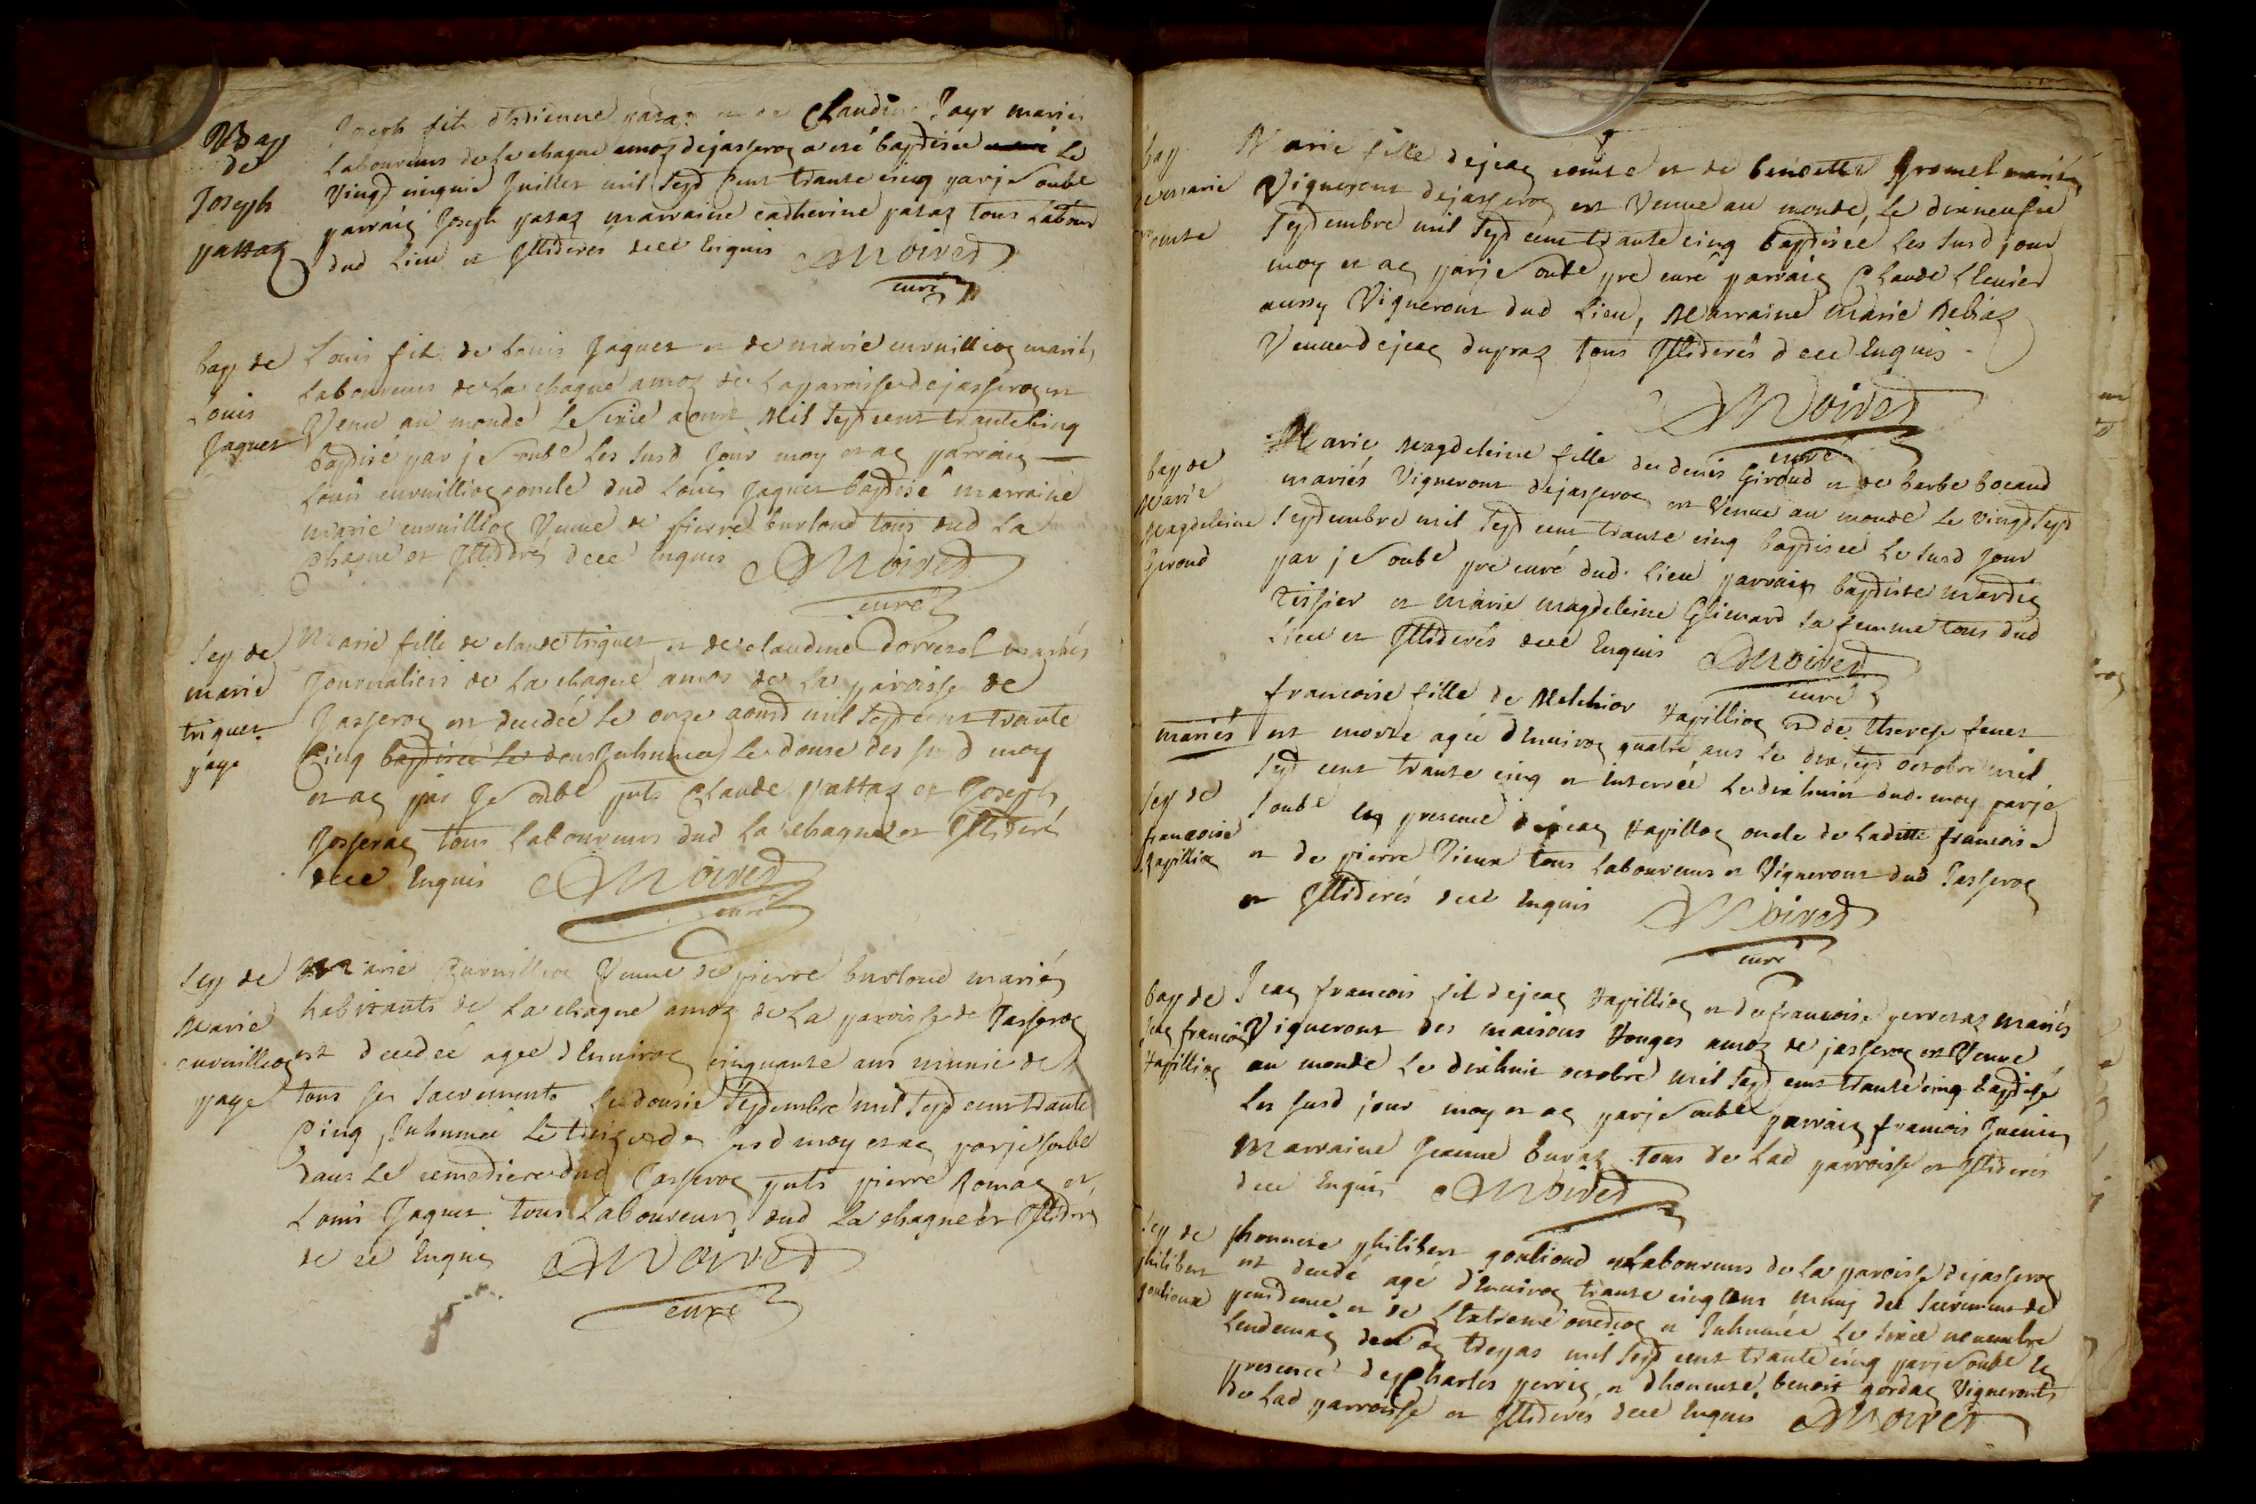 Bap
de
Joseph
pattaz
Joseph fils dEstienne pataz et de Claudine Payr mariés
Laboureurs de La chagne amoz dejasseroz a esté baptisée Le
Vingt cinquie Juillet mil Sept cent trante cinq par je soubé
parraiz Joseph pataz marraine catherine pataz tous Labour
dud Lieu et Jlliderés dece Enquis Moiret
curé
bap de
Louis
Jaguet
Louis fils de Louis Jaguet et de marie curnillioz mariés
Laboureurs de La chagne amoz de La paroisse dejasseroz est
Venu au monde Le sixie aoust Mil Sept cent trante Cinq
baptisé par je soubé Les susd Jour moy et aq parraiz
Louis curnillioz oncle dud Louis Jaguet baptisé marraine
marie curnillioz Veuve de pierre burloud tous dud La
Chagne et Jllidrés dece Enquis Moiret
curé
Sep de
marie
triguet
paye
Marie fille de claude triguet et de claudine Dorrezol mariés
Journaliers de La chagne amoz de La paroisse de
Jasseroz est decedée Le onze aoust mil Sept cent trante
Cinq baptisée Le dous Juhumée Le douse des susd moy
et aq par Je soubé pnts Claude pattaz et Joseph
Josseraz tous Laboureurs dud La chagne et Jllideré
dece Enquis Moiret
curé
Sep de
Marie
curnillioz
paye
Marie Curnillioz Veuve de pierre burloud mariés
habitants de La chagne amoz de La paroisse de Jasseroz
est decedée agée dEnuiroz cinquante ans munie de
tous ses sacrements Le dousie Septembre mil Sept cent trante
Cinq Juhumée Le treize des susd moy et aq par je soubé
dans Le cemetiere dud Jasseroz pnts pierre Romaz et
Louis Jaguet tous Laboureurs dud La chagne et Jllidrés
de ce Enquis Moiret
curé
bap
de marie
comte
Marie fille dejeaz comte et de benoette Gromel mariés
Vignerons dejasseroz est Venue au monde, Le dixneufie
Septembre mil Sept cent trante cinq baptisée Les susd jour
moy et aq par je soubé pre curé parraiz Claude
aussy Vignerons dud Lieu, Marraine Marie Rebaz
Veuve dejeaz dupraz tous Jlliderés dece Enquis
Moiret
curé
bap de
Marie
Magdeleine
Giroud
Marie Magdeleine fille de denis Giroud et de barbe bocaud
mariés Vignerons dejasseroz est Venue au monde Le vingt Sept
Septembre mil Sept cent trante cinq baptisée Le susd Jour
par je soubé pre curé dud. Lieu parraiz baptiste mardiz
tissier et marie magdeleine Glimard sa femme tous dud
Lieu et Jlliderés dece Enquis Moiret
curé
Sep de
francoise
Rapillioz
francoise fille de Melchior Rapillioz et de therese fenet
mariés est morte agée dEnuiroz quatre ans Le dix Sept octobre mil
Sept cent trante cinq et enterrée Le dix huit dud. moy par je
soubé en presence dejeaz Rapilloz oncle de Laditte francoise
et de pierre Vieux tous Laboureurs et Vignerons dud Jasseroz
et Jlliderés dece Enquis Moiret
curé
bap de
Jeaz francois
Rapillioz
Jeaz francois fils dejeaz Rapillioz et de francoise perretaz mariés
Vignerons des maisons Rouges amoz de jasseroz est Venu
au monde Le dixhuit octobre mil Sept cent trante cinq baptisé
Les susd jour moy et aq par je soubé parraiz francois Juenin
Marraine Jeanne buraz tous de Lad parroisse et Jlliderés
dece Enquis Moiret
Sep de
philibert
goulioud
honnete philibert goulioud Laboureurs de La paroisse dejasseroz
est decedé agé dEnuiroz trante cinq ans muny des sacrement de
penitence et de L'Extreme onctioz et Juhumée Le sixie nouembre
Lendemaiz de soz treyas mil Sept cent trante cinq par je soubé en
presence de Charles perriz, et dhonneste benoit gordaz Vignerons
de Lad parroisse et Jlliderés dece Enquis Moiret